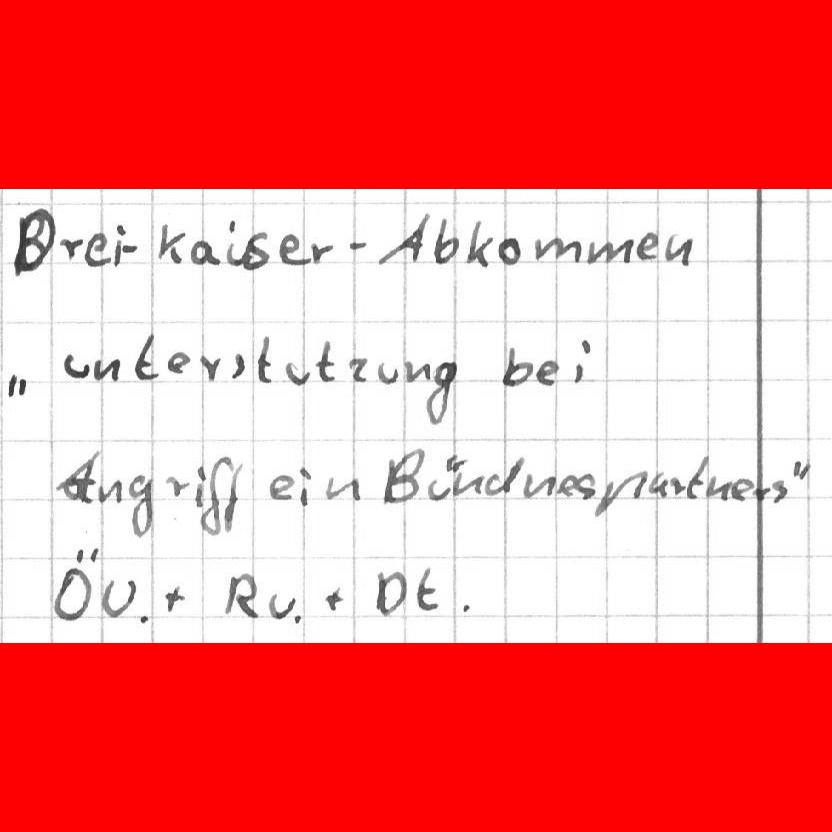 Drei-Kaiser-Abkommen
„ unterstutzung bei
Angriff ein Bündnespartners"
ÖU. + Ru. + Dt.